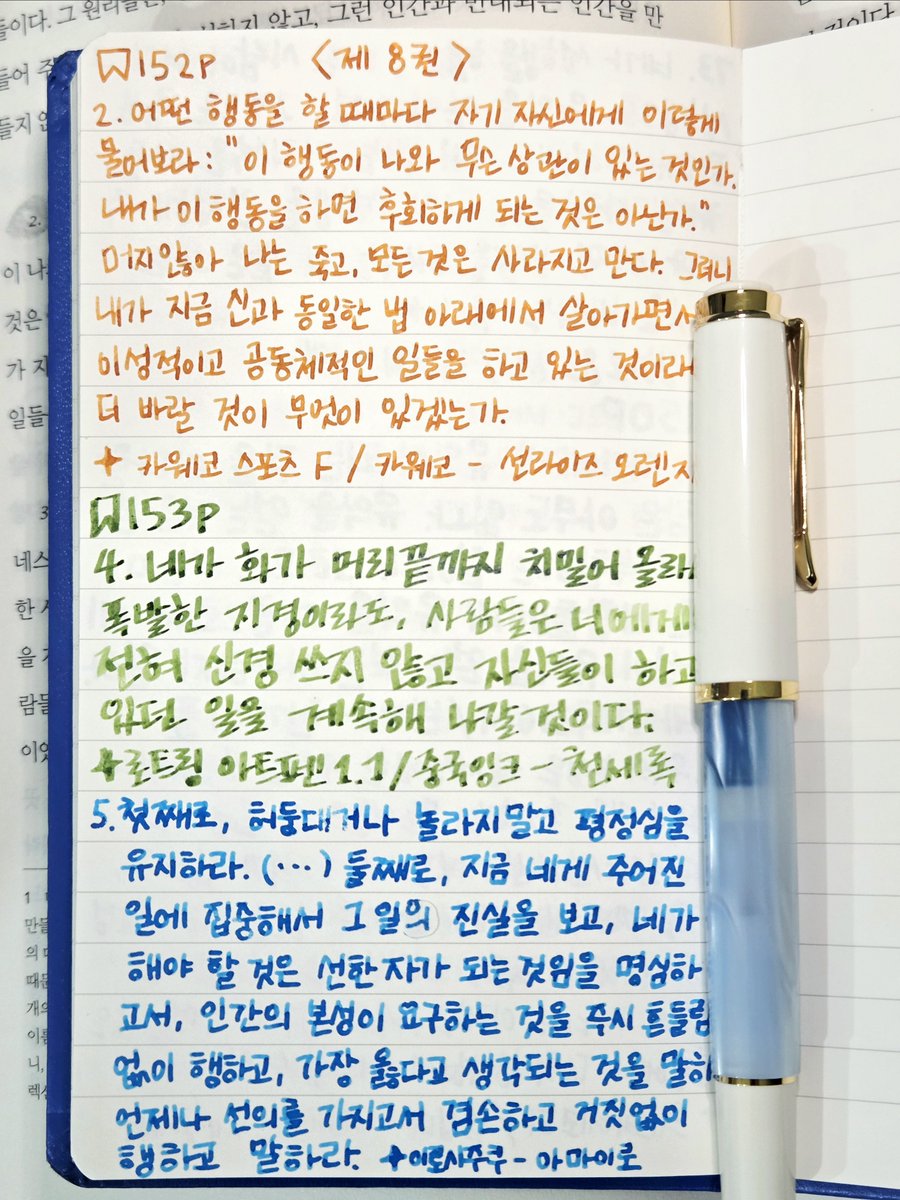 들이다. 그 원리들은, 하지 않고, 그런 인간과 반대되는 인간을 만
152P <제 8권>
2. 어떤 행동을 할 때마다 자기 자신에게 이렇게
물어보라: "이 행동이 나와 무슨 상관이 있는 것인가.
내가 이 행동을 하면 후회하게 되는 것은 아닌가."
머지않아 나는 죽고, 모든 것은 사라지고 만다. 그러니
내가 지금 신과 동일한 법 아래에서 살아가면서
이성적이고 공동체적인 일들을 하고 있는 것이라
더 바랄 것이 무엇이 있겠는가.
+ 카웨코 스포츠 F / 카웨코 - 선라이즈 오렌지
153P
4. 네가 화가 머리끝까지 치밀어 올라
폭발한 지경이라도, 사람들은 너에게
전혀 신경 쓰지 않고 자신들이 하고
있던 일을 계속해 나갈것이다.
+로트링 아트펜1.1/중국잉크-천세록
5. 첫째로, 허둥대거나 놀라지말고 평정심을
유지하라. (…) 둘째로, 지금 네게 주어진
일에 집중해서 그 일의 진실을 보고, 네가
해야 할 것은 선한 자가 되는 것임을 명심하
고서, 인간의 본성이 요구하는 것을 주시 흔들림
없이 행하고, 가장 옳다고 생각되는 것을 말하
언제나 선의를 가지고서 겸손하고 거짓없이
행하고 말하라. +이로시주쿠-아마이로